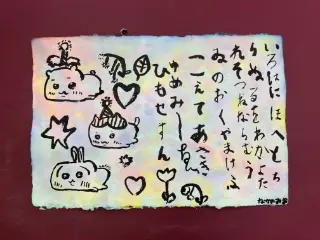 いろはにほへとち
りぬるをわかよた
れそつねならむう
ゐのおくやまけふ
こえてあさき
ゆめみしゑ
ひもせすん